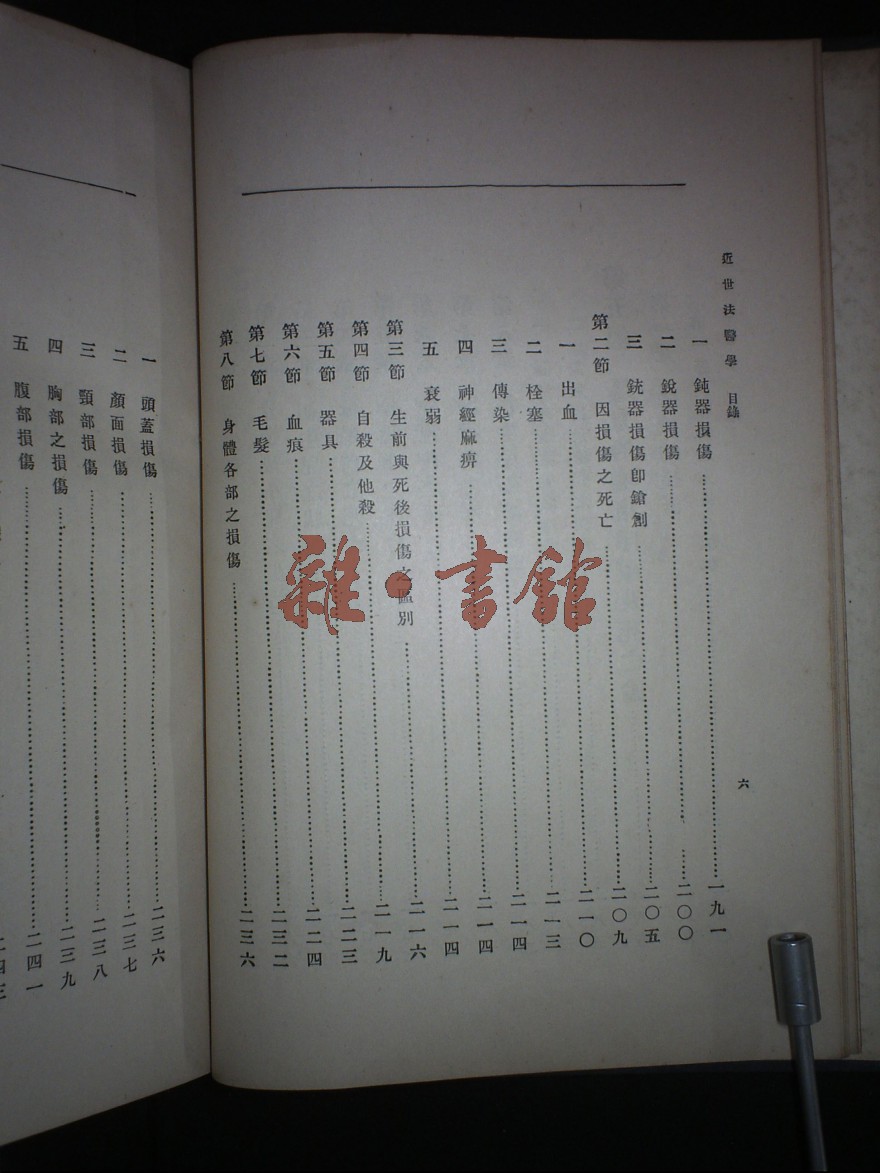 近世法醫學 目錄 六
一 鈍器損傷 一九一
二 銳器損傷 二〇〇
三 銃器損傷卽鎗創 二〇五
第二節 因損傷之死亡 二〇九
一 出血 二一〇
二 栓塞 二一三
三 傳染 二一四
四 神經麻痹 二一四
五 衰弱 二一四
第三節 生前與死後損傷之區別 二一六
第四節 自殺及他殺 二一九
第五節 器具 二二三
第六節 血痕 二二四
第七節 毛髮 二三二
第八節 身體各部之損傷 二三六
一 頭蓋損傷 二三六
二 顏面損傷 二三七
三 頸部損傷 二三八
四 胸部之損傷 二三九
五 腹部損傷 二四一
雜·書館